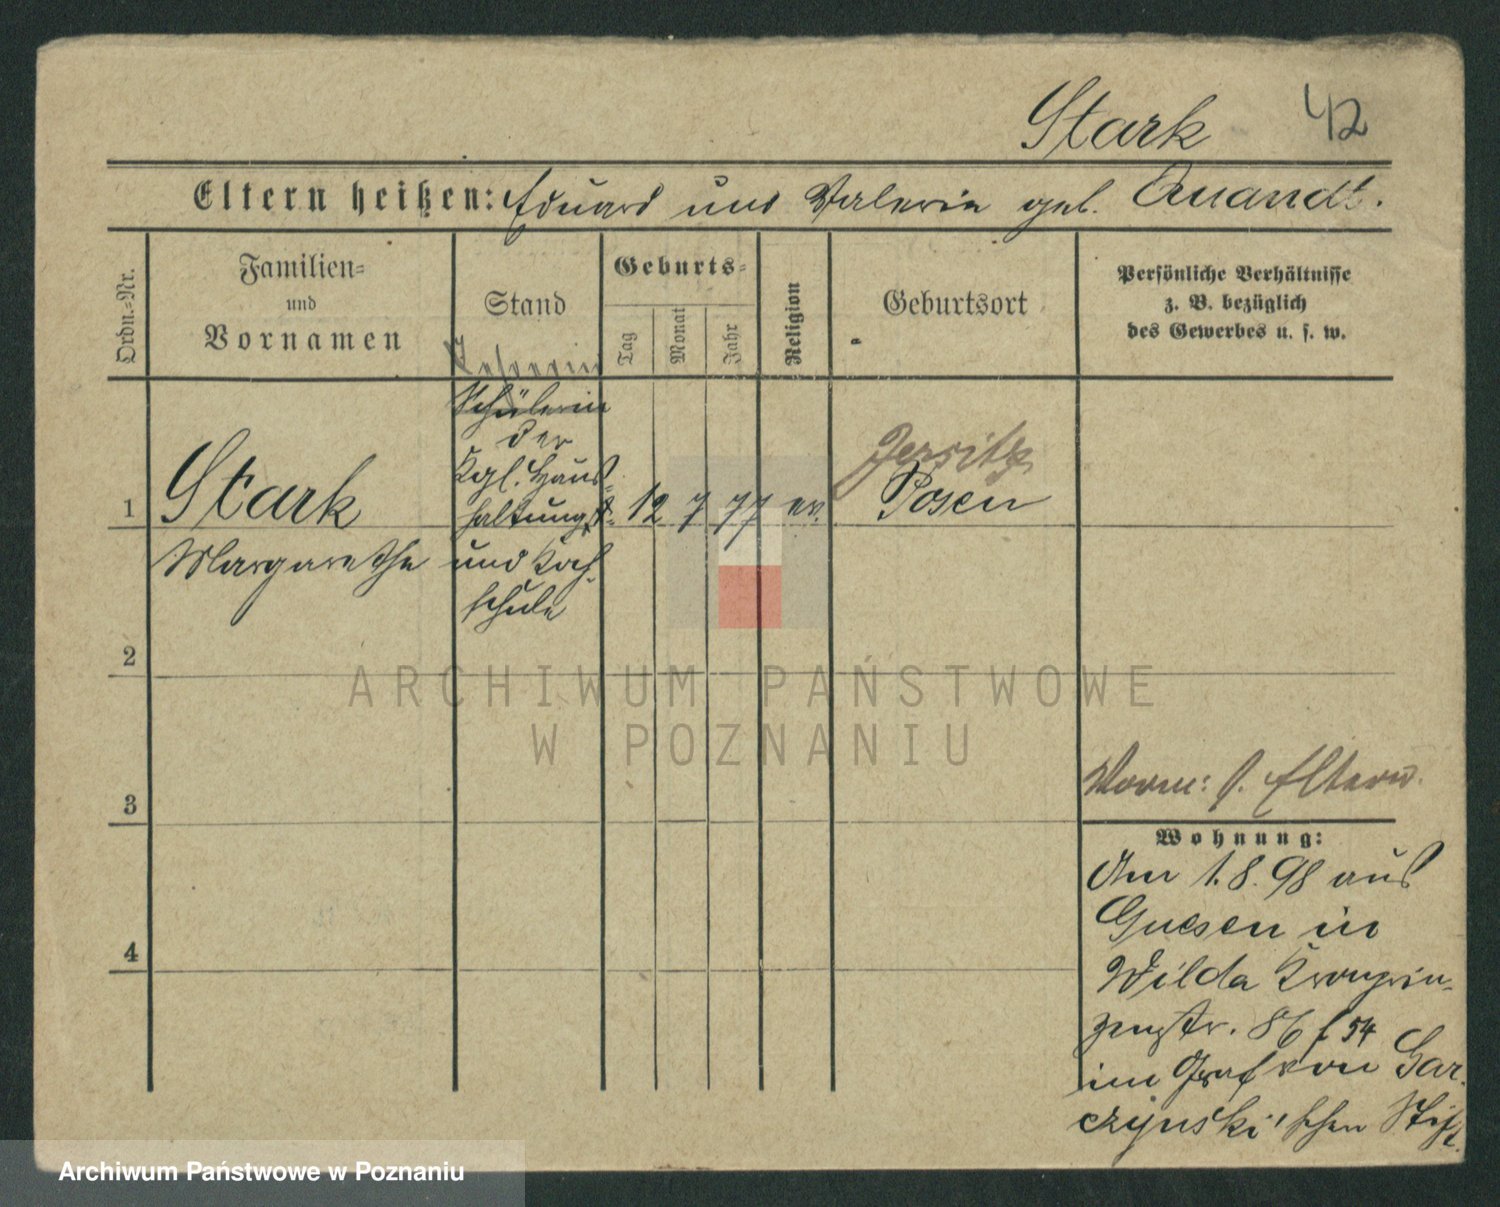 Stark 42
Eltern heißen: Eduard und Valerie geb. Quandt.
Ordn.-Nr.
Familien-
und
Vornamen
Stand
Geburts-
Tag
Monat
Jahr
Religion
Geburtsort
Persönliche Verhältnisse
z. B. bezüglich
des Gewerbes u. s. w.
Schülerin
der
Kgl. Haus-
haltungs-
und Koch-
schule
1 Stark
Margarethe
12 7 77 ev.
Jersitz
Posen
2
3
4
ARCHIWUM PAŃSTWOWE
W POZNANIU
Vorm: s. Eltern.
Wohnung:
Am 1.8.98 aus
Gnesen in
Wilda Kronprin-
zenstr. 86 f 54
im Graf von Gar-
czynski'schen Stift.
Archiwum Państwowe w Poznaniu